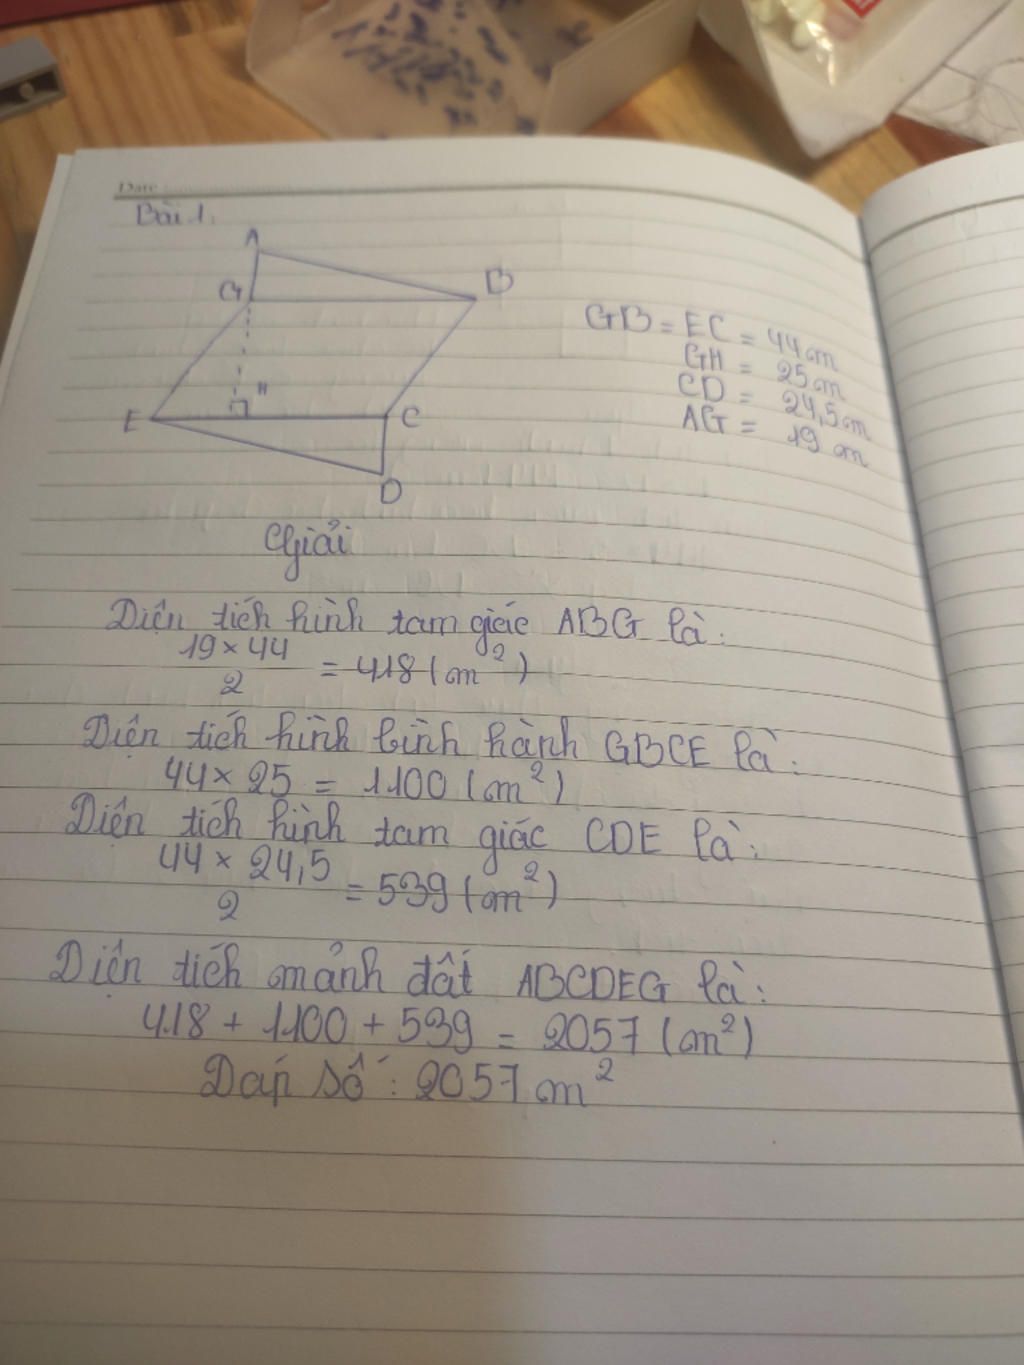 Date
Bài 1.
A
G
B
GB = EC = 44 cm
GH = 25 cm
CD = 24,5 cm
AG = 19 cm
H
E
C
D
Giải
Diện tích hình tam giác ABG là:
19 × 44
2
= 418 (cm²)
Diện tích hình bình hành GBCE là:
44 × 25 = 1100 (cm²)
Diện tích hình tam giác CDE là:
44 × 24,5
2
= 539 (cm²)
Diện tích mảnh đất ABCDEG là:
418 + 1100 + 539 = 2057 (cm²)
Đáp số: 2057 cm²